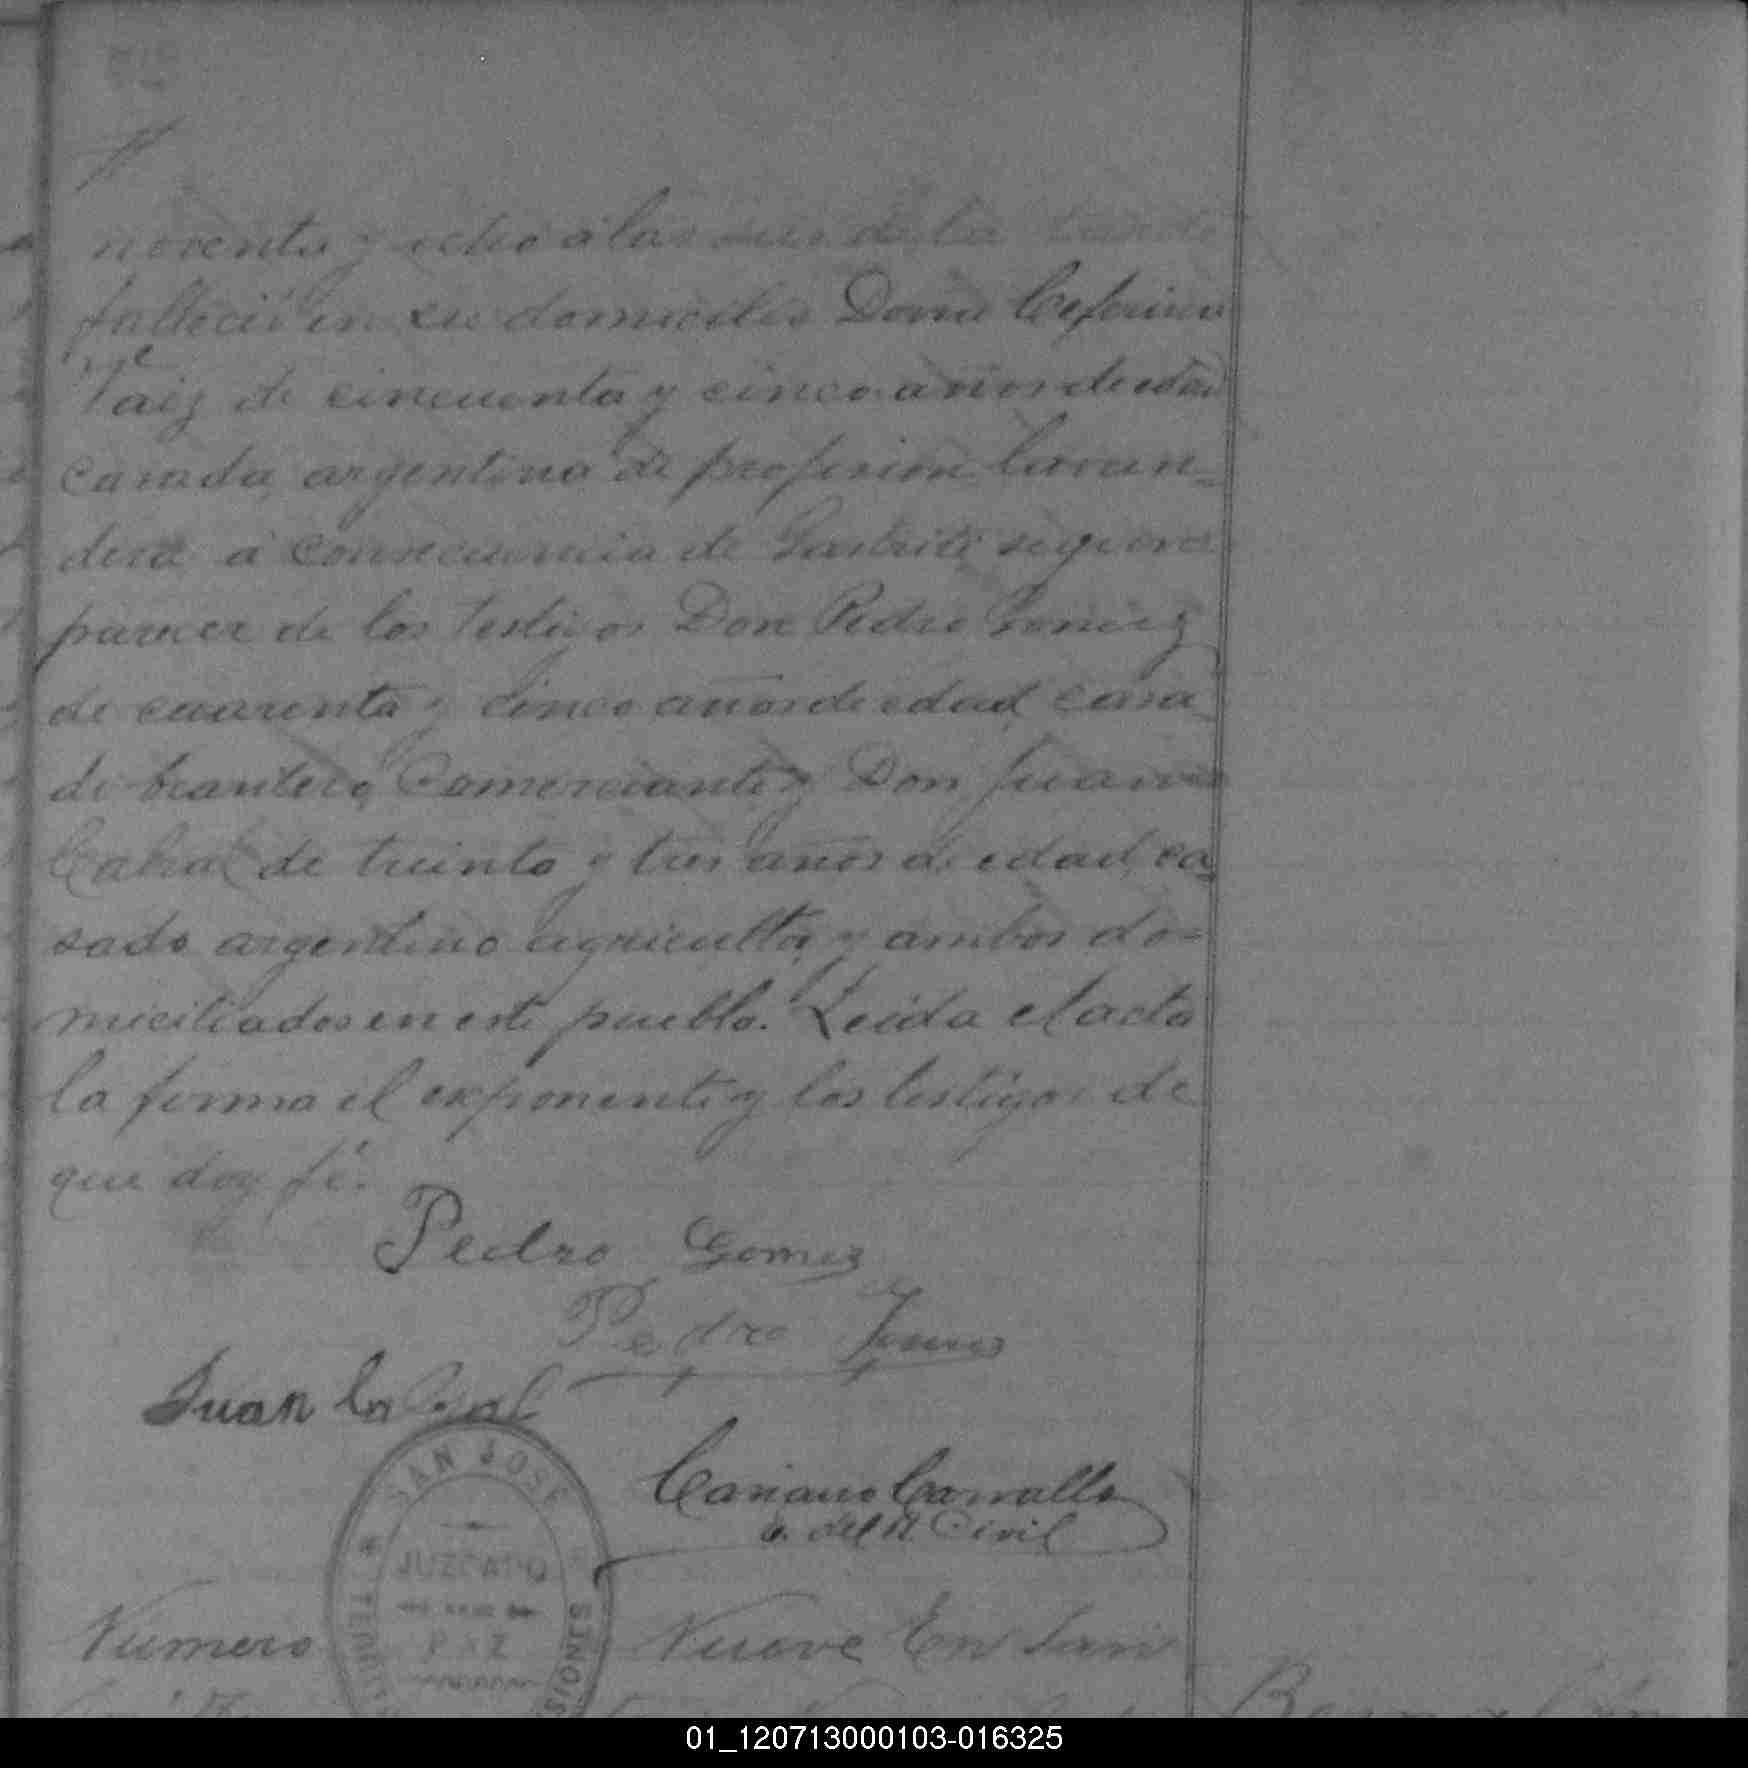 noventa y ocho á las de la tarde
falleció en su domicilio Doña Ceferina
de cincuenta y cinco años de edad
casada argentina de profesion lavan-
dera á consecuencia de Gastritis segun
parecer de los testigos Don Pedro Gomez
de cuarenta y cinco años de edad casa
do Comerciante y Don Juan
Cabral de treinta y tres años de edad, ca-
sado argentino agricultor y ambos do-
miciliados en este pueblo. Leida el acta
la firma el exponente y los testigos de
que doy fé.
Pedro Gomez
Pedro
Juan Cabral
Carvallo
e. del R. Civil
SAN JOSE
JUZGADO
DE
PAZ
Numero Nueve En San
01_120713000103-016325